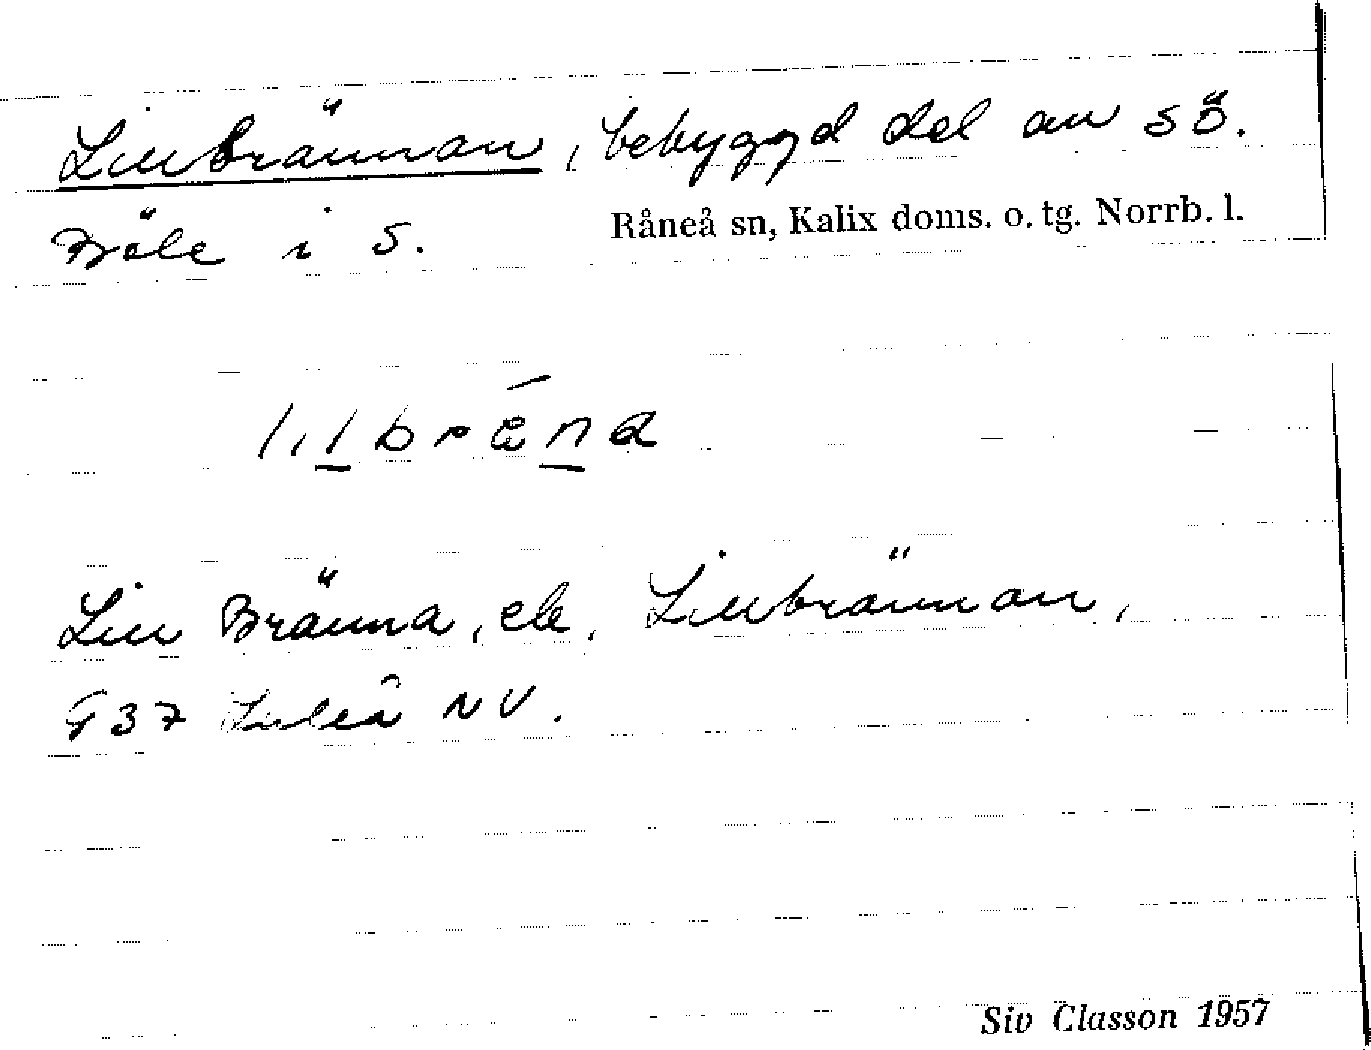 Lillbrännan, bebyggd del av s Ö.
Böle i S. Råneå sn, Kalix doms. o. tg. Norrb. l.
lilbrǽna
Lill Bränna, el. Lillbrännan,
G 37 Luleå NV.
Siv Classon 1957